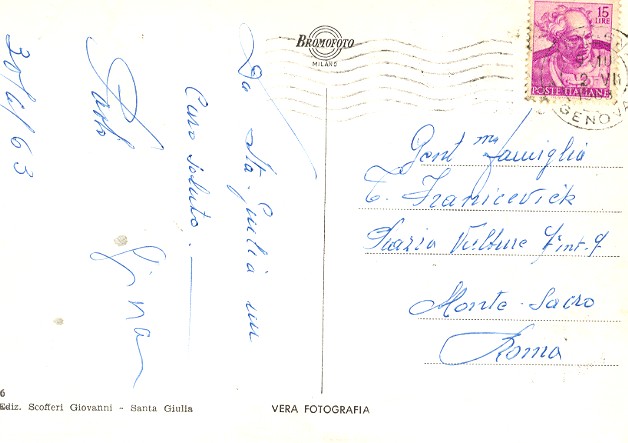 BROMOFOTO
MILANO
15
LIRE
POSTE ITALIANE
GENOVA
Da Sta. Giulia un
Caro saluto.
Gina
30/6/63
Gent ma famiglia
T. Franicevick
Piazza Vulture 7 int. 9
Monte-Sacro
Roma
6
Ediz. Scofferi Giovanni - Santa Giulia
VERA FOTOGRAFIA